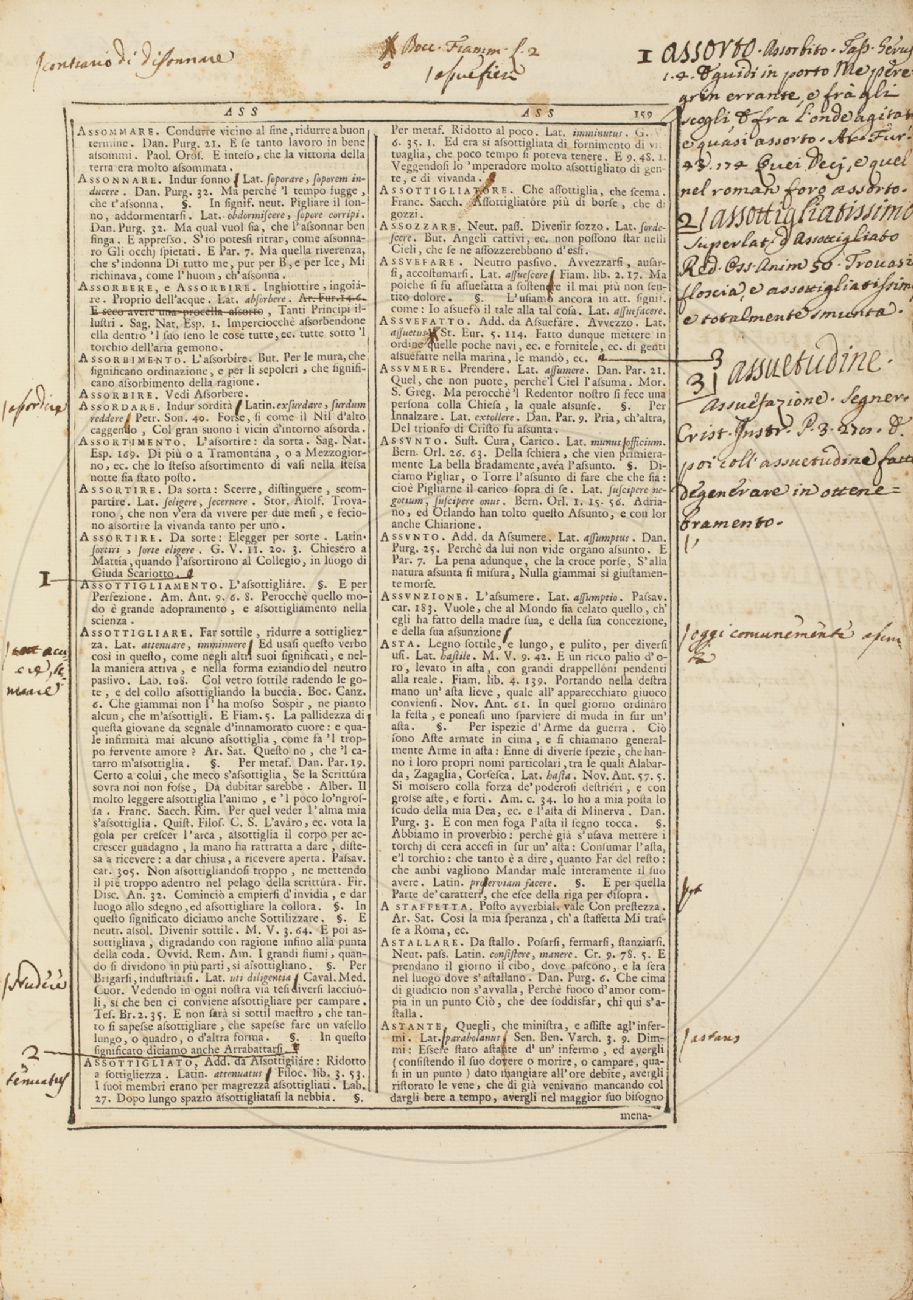 contrario di dissonnare
Bocc. Fiamm. l. 2
assuefieri
1 assorto. Assorbito. Tass. Gerus.
1. 4. E guidi in porto Me pere-
grin errante, e fra gli
scogli E fra l'onde agitato
e quasi assorto. Ar. Fur.
43. 174 Quei Decj, e quel
nel roman foro assorto.
2 assottigliatissimo
Superlat. d'Assottigliato
Red. Oss. Anim. 50. Trovasi
floscia, e assottigliatissima
e totalmente smunta.
3
3 assuetudine.
Assuefazione. Segner.
Crist. Instr. P. 3. 27. E
poi coll'assuetudine fatta
degenerare in ottene=
bramento.
oggi comunemente
astans
assordire
1
2
tenuatus
ASS
ASS 159
ASSOMMARE. Condurre vicino al fine, ridurre a buon
termine. Dan. Purg. 21. E se tanto lavoro in bene
assommi. Paol. Oros. E inteso, che la vittoria della
terra era molto assommata.
ASSONNARE. Indur sonno Lat. soporare, soporem in-
ducere. Dan. Purg. 32. Ma perchè 'l tempo fugge,
che t'assonna. §. In signif. neut. Pigliare il son-
no, addormentarsi. Lat. obdormiscere, sopore corripi.
Dan. Purg. 32. Ma qual vuol sia, che l'assonnar ben
finga. E appresso. S'io potessi ritrar, come assonna-
ro Gli occhj spietati. E Par. 7. Ma quella riverenza,
che s'indonna Di tutto me, pur per B, e per Ice, Mi
richinava, come l'huom, ch'assonna.
ASSORBERE, e ASSORBIRE. Inghiottire, ingoia-
re. Proprio dell'acque. Lat. absorbere. Ar. Fur. 14. 6.
E seco avere una procella assorto, Tanti Principi il-
lustri. Sag. Nat. Esp. 1. Imperciocchè assorbendone
ella dentro 'l suo seno le cose tutte, ec. tutte sotto 'l
torchio dell'aria gemono.
ASSORBIMENTO. L'assorbire. But. Per le mura, che
significano ordinazione, e per li sepolcri, che signifi-
cano assorbimento della ragione.
ASSORBIRE. Vedi Assorbere.
ASSORDARE. Indur sordità Latin. exsurdare, surdum
reddere Petr. Son. 40. Forse, sì come il Nil d'alto
caggendo, Col gran suono i vicin d'intorno assorda.
ASSORTIMENTO. L'assortire: da sorta. Sag. Nat.
Esp. 169. Di più o a Tramontana, o a Mezzogior-
no, ec. che lo stesso assortimento di vasi nella stessa
notte sia stato posto.
ASSORTIRE. Da sorta: Scerre, distinguere, scom-
partire. Lat. seligere, secernere. Stor. Aiolf. Trova-
rono, che non v'era da vivere per due mesi, e fecio-
no assortire la vivanda tanto per uno.
ASSORTIRE. Da sorte: Elegger per sorte. Latin.
sortiri, sorte eligere. G. V. 11. 20. 3. Chiesero a
Mattia, quando l'assortirono al Collegio, in luogo di
Giuda Scariotto.
ASSOTTIGLIAMENTO. L'assottigliare. §. E per
Perfezione. Am. Ant. 9. 6. 8. Perocchè quello mo-
do è grande adopramento, e assottigliamento nella
scienza.
ASSOTTIGLIARE. Far sottile, ridurre a sottigliez-
za. Lat. attenuare, imminuere Ed usasi questo verbo
così in questo, come negli altri suoi significati, e nel-
la maniera attiva, e nella forma eziandio del neutro
passivo. Lab. 108. Col vetro sottile radendo le go-
te, e del collo assottigliando la buccia. Boc. Canz.
6. Che giammai non l'ha mosso Sospir, ne pianto
alcun, che m'assottigli. E Fiam. 5. La pallidezza di
questa giovane da segnale d'innamorato cuore: e qua-
le infirmità mai alcuno assottiglia, come fa 'l trop-
po fervente amore? Ar. Sat. Questo no, che 'l ca-
tarro m'assottiglia. §. Per metaf. Dan. Par. 19.
Certo a colui, che meco s'assottiglia, Se la Scrittura
sovra noi non fosse, Da dubitar sarebbe. Alber. Il
molto leggere assottiglia l'animo, e 'l poco lo 'ngros-
sa. Franc. Sacch. Rim. Per quel veder l'alma mia
s'assottiglia. Quist. Filos. C. S. L'avaro, ec. vota la
gola per crescer l'arca, assottiglia il corpo per ac-
crescer guadagno, la mano ha rattratta a dare, diste-
sa a ricevere: a dar chiusa, a ricevere aperta. Passav.
car. 305. Non assottigliandosi troppo, ne mettendo
il piè troppo adentro nel pelago della scrittura. Fir.
Disc. An. 32. Cominciò a empiersi d'invidia, e dar
luogo allo sdegno, ed assottigliare la collora. §. In
questo significato diciamo anche Sottilizzare. §. E
neutr. assol. Divenir sottile. M. V. 3. 64. E poi as-
sottigliava, digradando con ragione infino alla punta
della coda. Ovvid. Rem. Am. I grandi fiumi, quan-
do si dividono in più parti, si assottigliano. §. Per
Brigarsi, industriarsi. Lat. uti diligentia Caval. Med.
Cuor. Vedendo in ogni nostra via tesi diversi lacciuo-
li, sì che ben ci conviene assottigliare per campare.
Tes. Br. 2. 35. E non sarà sì sottil maestro, che tan-
to si sapesse assottigliare, che sapesse fare un vasello
lungo, o quadro, o d'altra forma. §. In questo
significato diciamo anche Arrabattarsi.
ASSOTTIGLIATO, Add. da Assottigliare: Ridotto
a sottigliezza. Latin. attenuatus Filoc. lib. 3. 53.
I suoi membri erano per magrezza assottigliati. Lab.
27. Dopo lungo spazio assottigliatasi la nebbia. §.
Per metaf. Ridotto al poco. Lat. imminutus. G. V.
6. 35. 1. Ed era sì assottigliata di fornimento di vi-
tuaglia, che poco tempo si poteva tenere. E 9. 48. 1.
Veggendosi lo 'mperadore molto assottigliato di gen-
te, e di vivanda.
ASSOTTIGLIATORE. Che assottiglia, che scema.
Franc. Sacch. Assottigliatore più di borse, che di
gozzi.
ASSOZZARE. Neut. pass. Divenir sozzo. Lat. sorde-
scere. But. Angeli cattivi, ec. non possono star nelli
Cieli, che se ne assozzerebbono d'essi.
ASSVEFARE. Neutro passivo. Avvezzarsi, ausar-
si, accostumarsi. Lat. assuescere Fiam. lib. 2. 17. Ma
poichè si fu assuefatta a sostenere il mai più non sen-
tito dolore. §. L'usiamo ancora in att. signif.
come: Io assuefò il tale alla tal cosa. Lat. assuefacere.
ASSVEFATTO. Add. da Assuefare. Avvezzo. Lat.
assuetus St. Eur. 5. 114. Fatto dunque mettere in
ordine quelle poche navi, ec. e fornitele, ec. di genti
assuefatte nella marina, le mandò, ec.
ASSVMERE. Prendere. Lat. assumere. Dan. Par. 21.
Quel, che non puote, perchè 'l Ciel l'assuma. Mor.
S. Greg. Ma perocchè 'l Redentor nostro si fece una
persona colla Chiesa, la quale assunse. §. Per
Innalzare. Lat. extollere. Dan. Par. 9. Pria, ch'altra,
Del trionfo di Cristo fu assunta.
ASSVNTO. Sust. Cura, Carico. Lat. munus officium.
Bern. Orl. 26. 63. Della schiera, che vien primiera-
mente La bella Bradamente, avea l'assunto. §. Di-
ciamo Pigliar, o Torre l'assunto di fare che che sia:
cioè Pigliarne il carico sopra di se. Lat. suscipere ne-
gotium, suscipere onus. Bern. Orl. 1. 15. 56. Adria-
no, ed Orlando han tolto questo Assunto, e con lor
anche Chiarione.
ASSVNTO. Add. da Assumere. Lat. assumptus. Dan.
Purg. 25. Perchè da lui non vide organo assunto. E
Par. 7. La pena adunque, che la croce porse, S'alla
natura assunta si misura, Nulla giammai sì giustamen-
te morse.
ASSVNZIONE. L'assumere. Lat. assumptio. Passav.
car. 183. Vuole, che al Mondo sia celato quello, ch'
egli ha fatto della madre sua, e della sua concezione,
e della sua assunzione
ASTA. Legno sottile, e lungo, e pulito, per diversi
usi. Lat. hastile. M. V. 9. 42. E un ricco palio d'o-
ro, levato in asta, con grandi drappelloni pendenti
alla reale. Fiam. lib. 4. 139. Portando nella destra
mano un'asta lieve, quale all'apparecchiato giuoco
conviensi. Nov. Ant. 61. In quel giorno ordinaro
la festa, e poneasi uno sparviere di muda in sur un'
asta. §. Per ispezie d'Arme da guerra. Ciò
sono Aste armate in cima, e si chiamano general-
mente Arme in asta: Enne di diverse spezie, che han-
no i loro propri nomi particolari, tra le quali Alabar-
da, Zagaglia, Corsesca. Lat. hasta. Nov. Ant. 57. 5.
Si mossero colla forza de' poderosi destrieri, e con
grosse aste, e forti. Am. c. 34. Io ho a mia posta lo
scudo della mia Dea, ec. e l'asta di Minerva. Dan.
Purg. 3. E con men foga l'asta il segno tocca. §.
Abbiamo in proverbio: perchè già s'usava mettere i
torchj di cera accesi in sur un'asta: Consumar l'asta,
e 'l torchio: che tanto è a dire, quanto Far del resto:
che ambi vagliono Mandar male interamente il suo
avere. Latin. proterviam facere. §. E per quella
Parte de' caratteri, che esce della riga per dissopra.
A STAFFETTA. Posto avverbial. vale Con prestezza.
Ar. Sat. Così la mia speranza, ch'a staffetta Mi tras-
se a Roma, ec.
ASTALLARE. Da stallo. Posarsi, fermarsi, stanziarsi.
Neut. pass. Latin. consistere, manere. Cr. 9. 78. 5. E
prendano il giorno il cibo, dove pascono, e la sera
nel luogo dove s'astallano. Dan. Purg. 6. Che cima
di giudicio non s'avvalla, Perchè fuoco d'amor com-
pia in un punto Ciò, che dee soddisfar, chi qui s'a-
stalla.
ASTANTE Quegli, che ministra, e assiste agl'infer-
mi. Lat. parabolanus Sen. Ben. Varch. 3. 9. Dim-
mi: Essere stato astante d'un 'nfermo, ed avergli
(consistendo il suo dovere o morire, o campare, qua-
si in un punto) dato mangiare all'ore debite, avergli
ristorato le vene, che di già venivano mancando col
dargli bere a tempo, avergli nel maggior suo bisogno
mena-